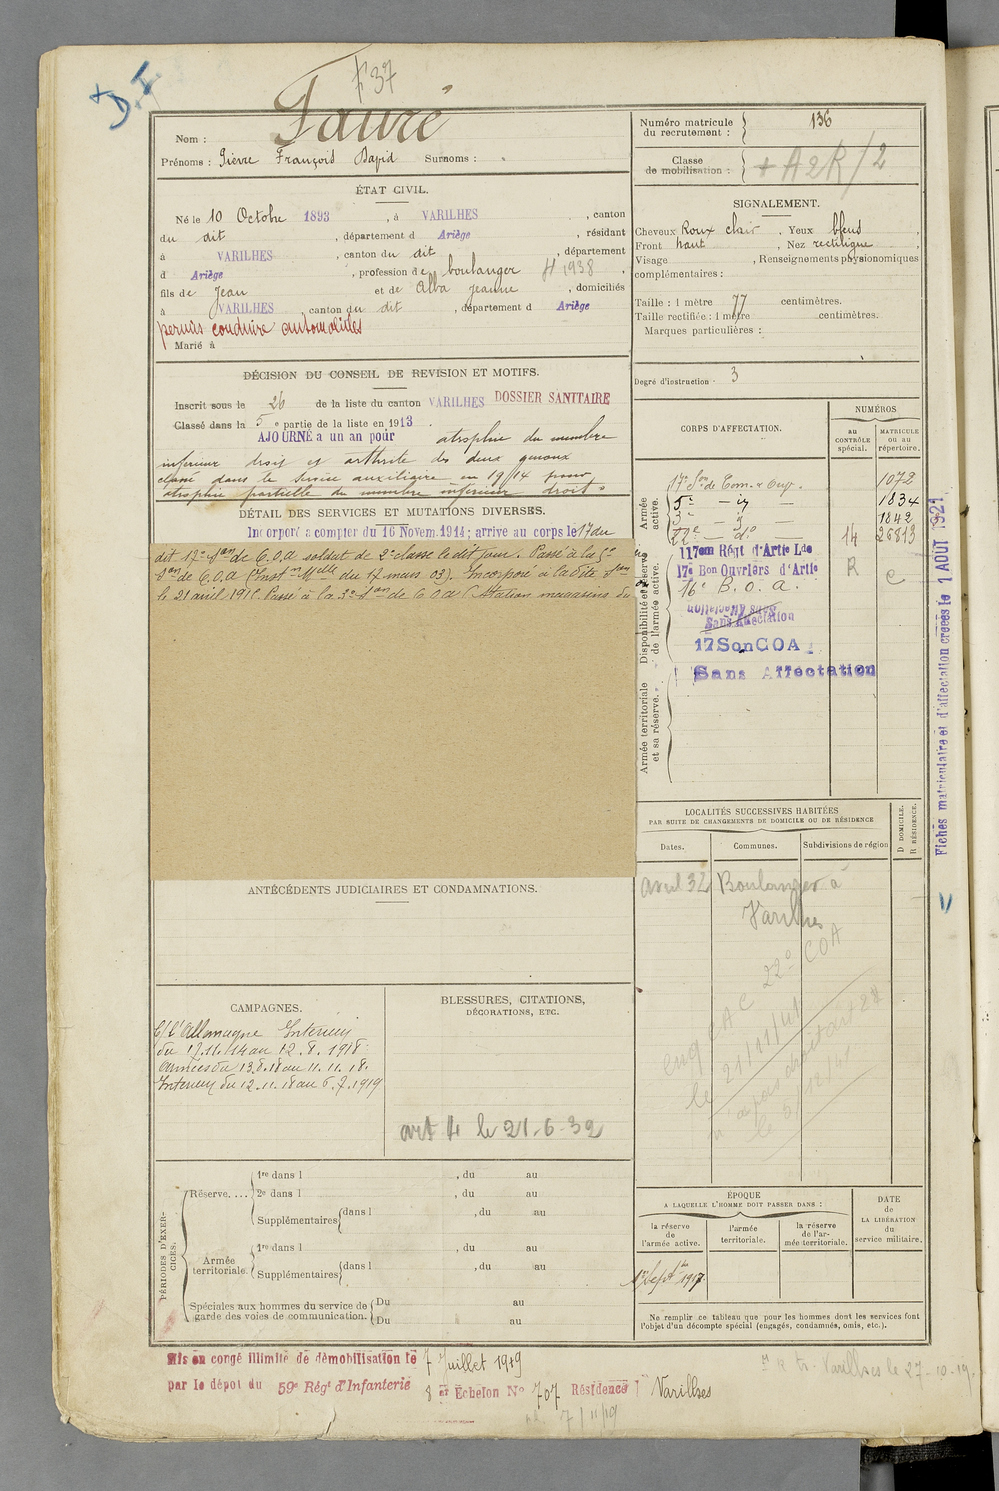 + D I
F 37
Nom : Fauré
Prénoms : Pierre François David Surnoms :
ÉTAT CIVIL.
Né le 10 Octobre 1893, à VARILHES, canton
du dit, département d Ariège, résidant
à VARILHES, canton du dit, département
d Ariège, profession de boulanger H 1938.
fils de Jean et de Alba Jeanne, domiciliés
à VARILHES, canton du dit, département d Ariège
permis conduire automobiles
Marié à
DÉCISION DU CONSEIL DE REVISION ET MOTIFS.
Inscrit sous le 26 de la liste du canton VARILHES DOSSIER SANITAIRE
Classé dans la 5e partie de la liste en 1913.
AJOURNÉ à un an pour atrophie du membre
inférieur droit et arthrite des deux genoux
classé dans le service auxiliaire en 1914 pour
atrophie partielle du membre inférieur droit.
DÉTAIL DES SERVICES ET MUTATIONS DIVERSES.
Incorporé à compter du 16 Novem. 1914 ; arrivé au corps le 17 du
dit 17e Son de C.O.A soldat de 2e classe le dit jour. Passé à la 5e
Son de C.O.A (Instn Mlle du 17 mars 03). Incorporé à la dite Son
le 21 avril 191. Passé à la 3e Son de C O A (Station magasins du
ANTÉCÉDENTS JUDICIAIRES ET CONDAMNATIONS.
CAMPAGNES.
C/ l'Allemagne Intérieur
du 17.11.14 au 12.8.1918
Armées du 13.8.18 au 11.11.18.
Intérieur du 12.11.18 au 6.7.1919
BLESSURES, CITATIONS,
DÉCORATIONS, ETC.
art 4 le 21-6-32
PÉRIODES D'EXERCICES.
Réserve....
1re dans l , du au
2e dans l , du au
Supplémentaires dans l , du au
Armée
territoriale.
1re dans l , du au
Supplémentaires dans l , du au
Spéciales aux hommes du service de
garde des voies de communication.
Du au
Du au
Mis en congé illimité de démobilisation le 7 Juillet 1919
par le dépôt du 59e Régt d'Infanterie 8 er Echelon No 707 Résidence Varilhes
7/11/19
Numéro matricule
du recrutement : 136
Classe
de mobilisation : + A2R/2
SIGNALEMENT.
Cheveux Roux clair. Yeux bleus,
Front haut, Nez rectiligne,
Visage , Renseignements physionomiques
complémentaires :
Taille : 1 mètre 77 centimètres.
Taille rectifiée : 1 mètre centimètres.
Marques particulières :
Degré d'instruction : 3
CORPS D'AFFECTATION.
NUMÉROS
au
CONTRÔLE
spécial.
MATRICULE
ou au
répertoire.
Armée
active.
17e Son de Com. & Ouv. 1072
5e — id — 1834
3e — d — 1842
17e — do — 14 26813
Disponibilité et réserve
de l'armée active.
117em Régt d'Artie Lde R
17e Bon Ouvriers d'Artie e
16e B. o. a.
Sans Affectation
Sans Affectation
17 Son COA
Sans Affectation
Armée territoriale
et sa réserve.
Fiches matriculaire et d'affectation créées le 1 AOUT 1921
LOCALITÉS SUCCESSIVES HABITÉES
PAR SUITE DE CHANGEMENTS DE DOMICILE OU DE RÉSIDENCE
Dates. Communes. Subdivisions de région
D DOMICILE.
R RÉSIDENCE.
avril 32 Boulanger à
Varilhes
eng CAC 22e COA
le 21/11/41
le 5/12/41
ÉPOQUE
A LAQUELLE L'HOMME DOIT PASSER DANS :
la réserve
de
l'armée active.
l'armée
territoriale.
la réserve
de l'ar-
mée territoriale.
DATE
de
LA LIBÉRATION
du
service militaire.
1er Septbre 1917
Ne remplir ce tableau que pour les hommes dont les services font
l'objet d'un décompte spécial (engagés, condamnés, omis, etc.).
R tr. Varilhes le 27-10-19.